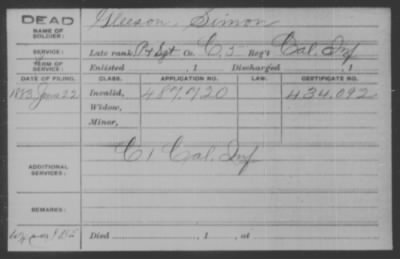 DEAD
NAME OF SOLDIER: Gleeson, Simon
SERVICE: Late rank, Pt Sgt Co. C, 5 Reg't Cal. Inf
TERM OF SERVICE: Enlisted , 1 Discharged , 1
DATE OF FILING. CLASS. APPLICATION NO. LAW. CERTIFICATE NO.
1883 June 22 Invalid, 487,720 434,092
Widow,
Minor,
C, 1 Cal. Inf
ADDITIONAL SERVICES:
REMARKS:
Died , 1 , at